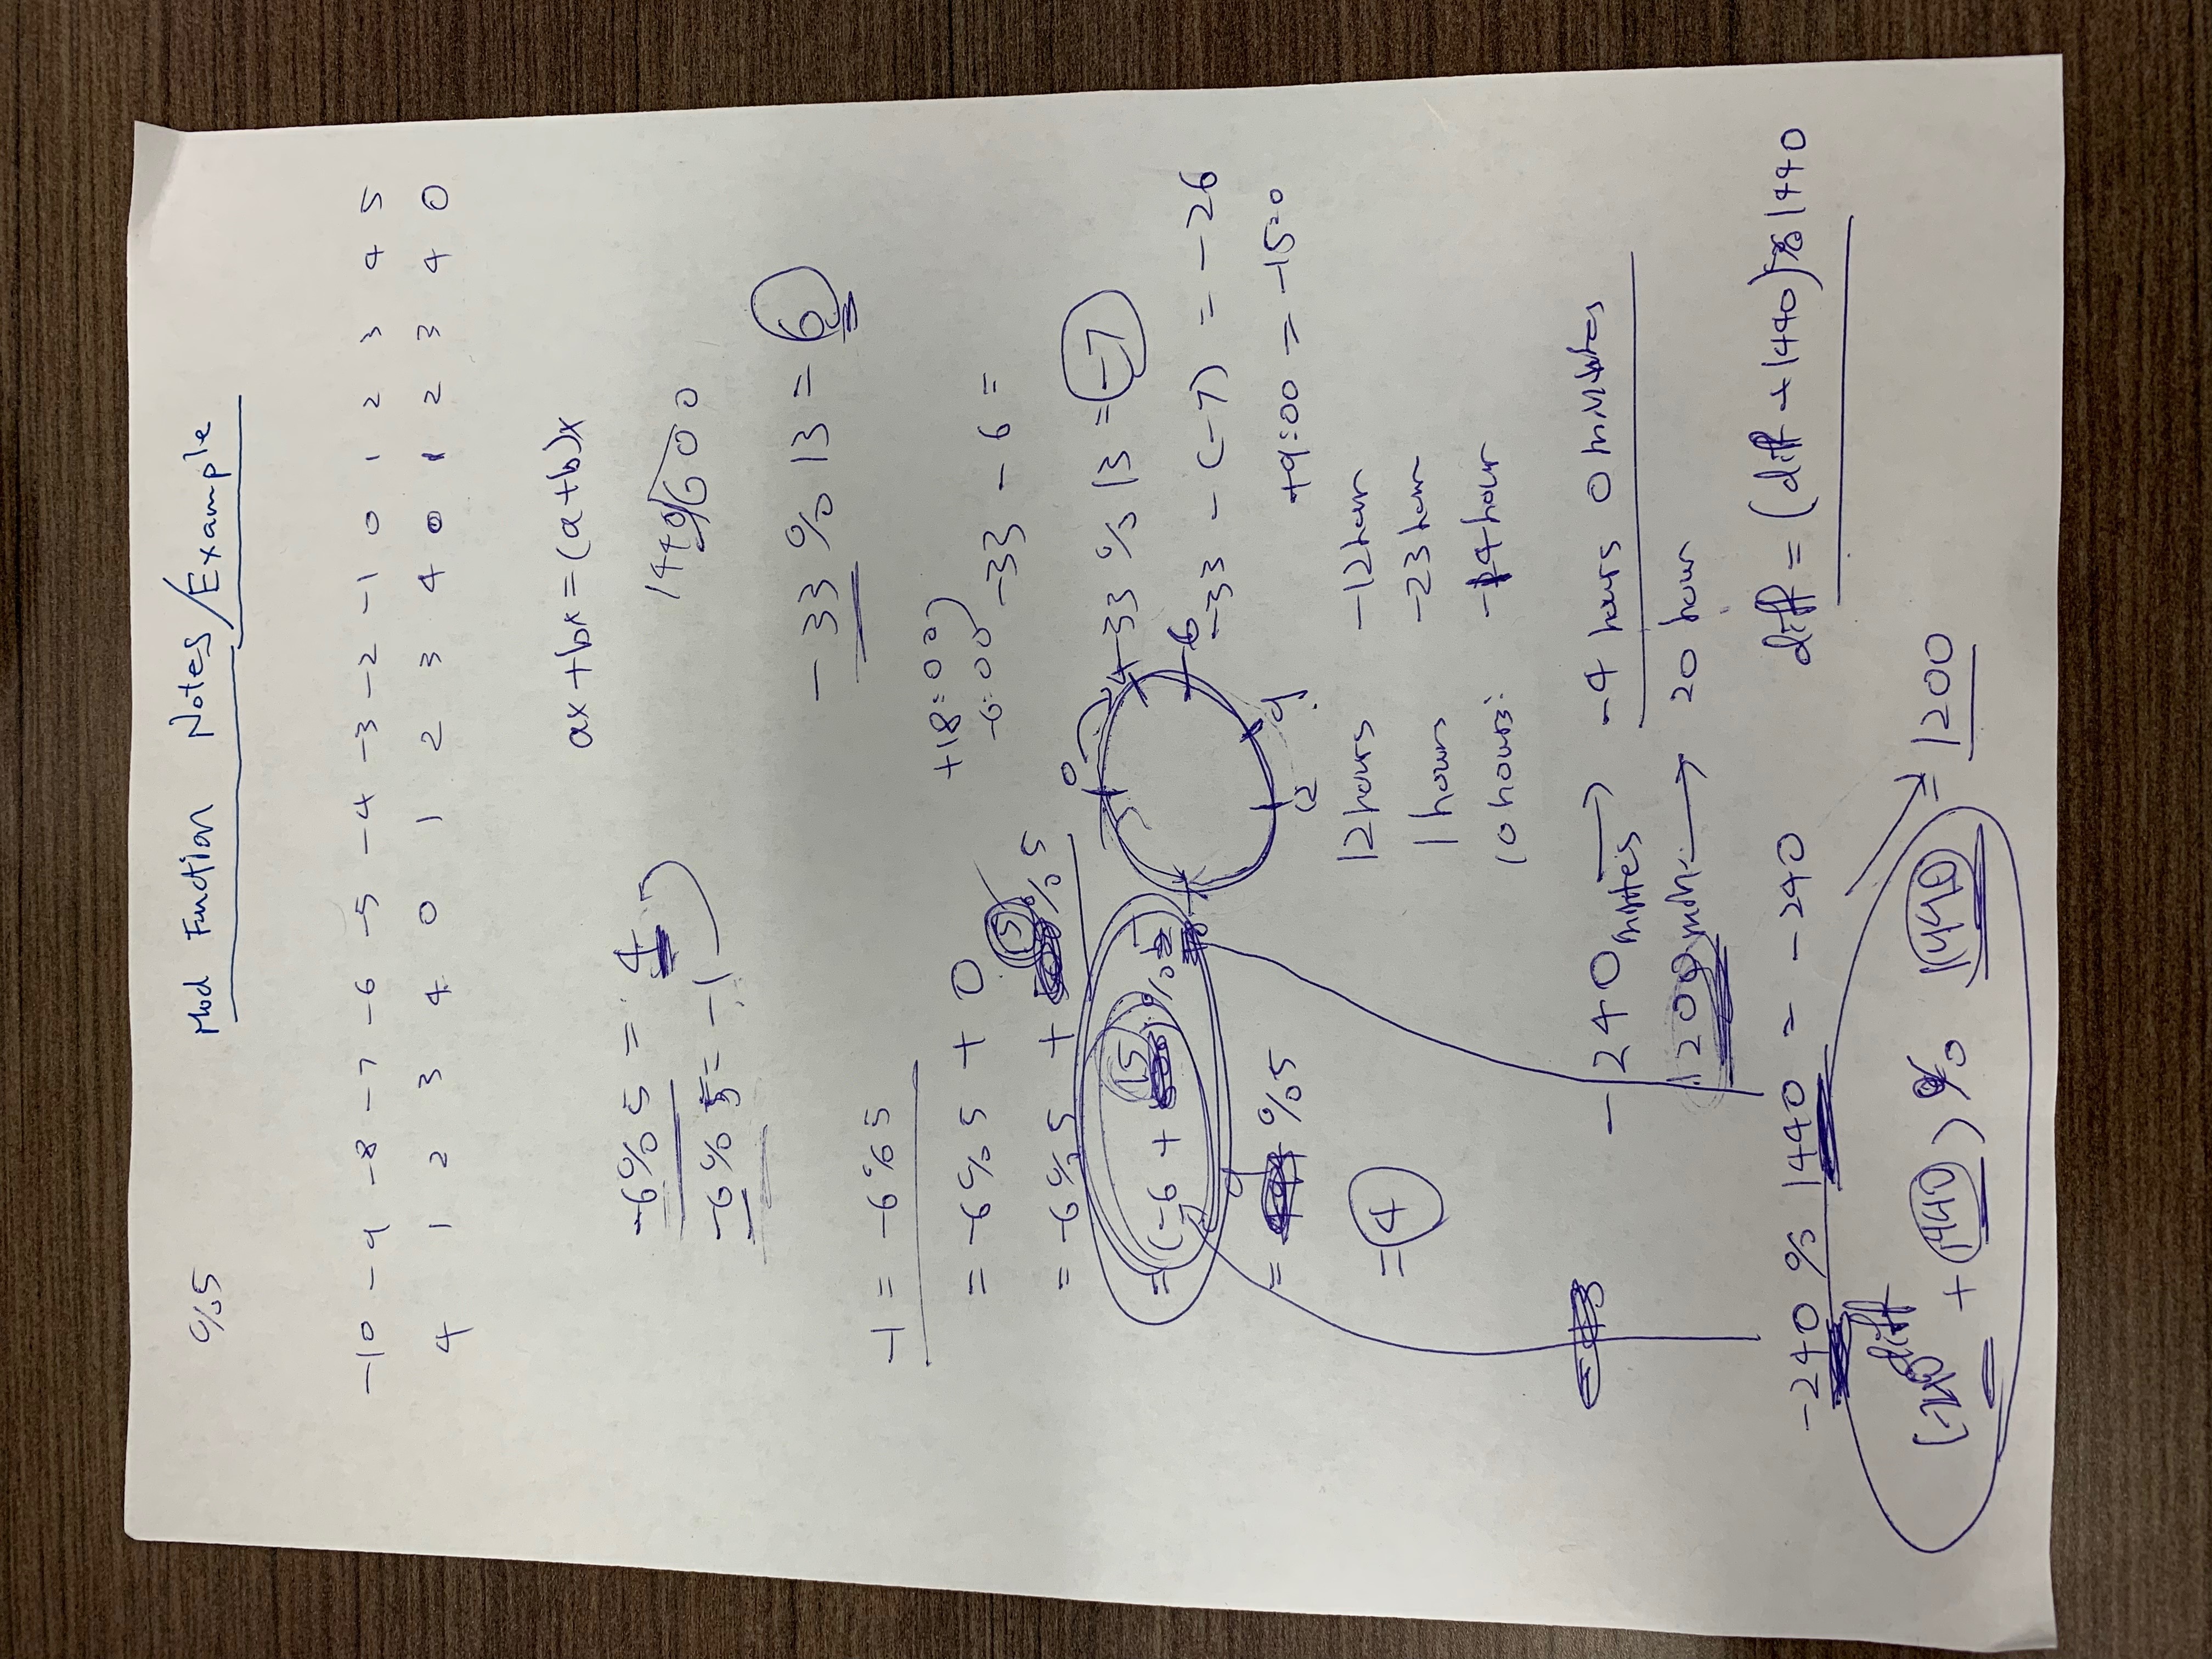 %5
Mod Function Notes/Example
-10 -9 -8 -7 -6 -5 -4 -3 -2 -1 0 1 2 3 4 5
4 1 2 3 4 0 1 2 3 4 0 1 2 3 4 0
ax+bx=(a+b)x
-6%5 = 4
-6%5 = -1
1440)600
-33 % 13 = 6
-1 = -6%5
= -6%5 + 0
+18:00
-6:00
-33 - 6 =
= -6%5 + 15%5
= (-6 + 15)%5
0
4
6
9
12
-33 % 13 = -7
-33 - (-7) = -26
= 9%5
+9:00 = -15:0
= 4
12hours -12hour
1 hours -23hour
10hours: -14hour
-240 minutes → -4 hours 0 minutes
1200 min → 20 hour
-240 % 1440 = -240
diff = (diff + 1440)%1440
diff
(-240 + 1440) % 1440 = 1200